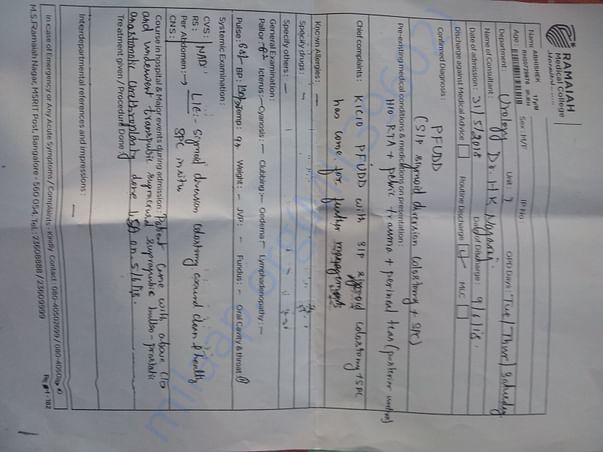 RAMAIAH
Medical College
Name ABHISHEK 17y/M Sex: M/F IP No
Age Unit: 2 OPD Days: Tue/Thur/Saturday
Department: Urology
Name of Consultant: Dr. H.K. Nagaraj
Date of admission: 31/5/2018 Date of Discharge: 9/6/18.
Discharge against Medical Advice Routine Discharge MLC
Confirmed Diagnosis:
PFUDD
(S/P sigmoid diversion colostomy + SPC)
Pre-existing medical conditions & medications on presentation:
H/O RTA + pelvic trauma + perineal tear (posterior urethra)
Chief complaints: K/C/O PFUDD with S/P sigmoid colostomy + SPC
has come for further management
Known Allergies: —
Specify drugs: —
Specify others: —
General Examination:
Pallor: Icterus: — Cyanosis: — Clubbing: — Oedema: — Lymphadenopathy: —
Pulse: BP: Temp: Weight: — JVP: — Fundus: — Oral Cavity & throat
Systemic Examination:
CVS: NAD
RS: L/E: - sigmoid diversion colostomy wound clean & healthy
Per Abdomen: → SPC in situ
CNS:
Course in hospital & Major events during admission: Patient came with above C/O
and underwent transpubic suprapubic bulbo-prostatic
anastomotic urethroplasty done on 5/6/18.
Treatment given / Procedure Done
Interdepartmental references and impressions:
In case of Emergency or Any Acute Symptoms / Complaints - Kindly Contact: 080-40502609 /
M.S.Ramaiah Nagar, MSRIT Post, Bangalore - 560 054, Tel.: 23608888 / 23609999